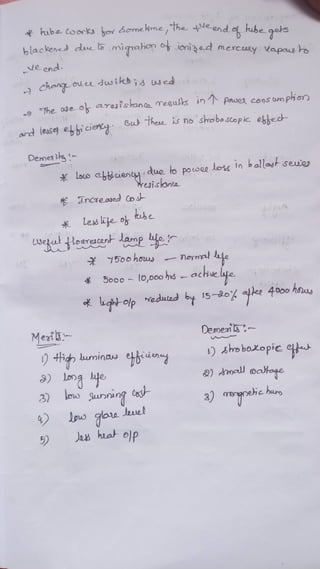 * tube works for sometime, the +ve end of tube gets
blackened due to migration of ionized mercury vapour to
-ve end.
→ change over switch is used
→ "The use of a resistance results in ↑ power consumption
and lesser efficiency. But there is no stroboscopic effect
Demerits :-
* low efficiency, due to power loss in ballast series
resistance
* Increased cost
* Less life of tube
Useful florescent lamp life :-
* 7500 hours — normal life
* 5000 - 10,000 hrs - active life
* light o/p reduced by 15-20% after 4000 hours
Merits :-
1) High luminous efficiency
2) long life
3) low running cost
4) low glare level
5) less heat o/p
Demerits :-
1) stroboscopic effect
2) small wattage
3) magnetic hum